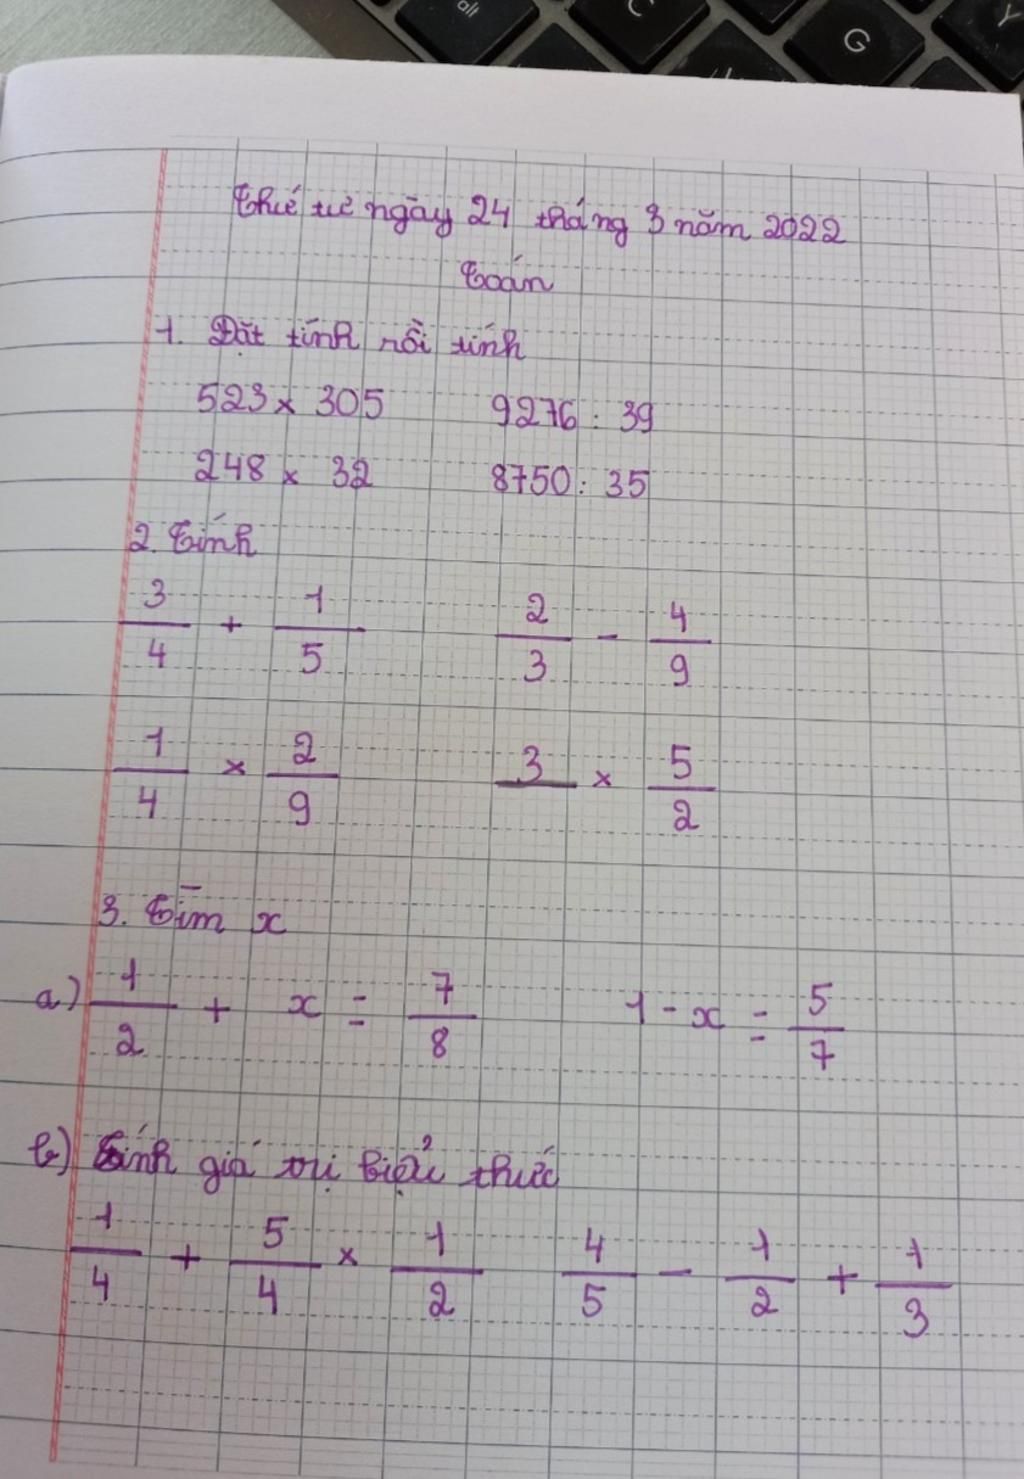 alt C G Y
Thứ tư ngày 24 tháng 3 năm 2022
Toán
1. Đặt tính rồi tính
523 x 305 9276 : 39
248 x 32 8750 : 35
2. Tính
3/4 + 1/5 2/3 - 4/9
1/4 x 2/9 3 x 5/2
3. Tìm x
a) 1/2 + x = 7/8 1 - x = 5/7
b) Tính giá trị biểu thức
1/4 + 5/4 x 1/2 4/5 - 1/2 + 1/3